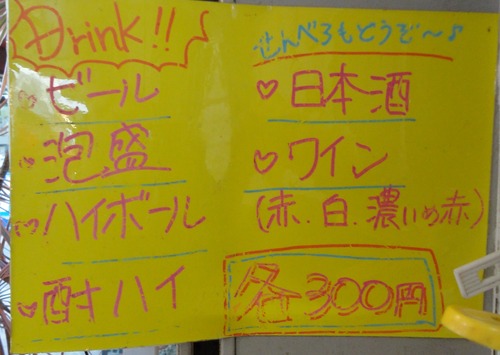 Drink!!
ビール
泡盛
ハイボール
酎ハイ
せんべろもどうぞ～♪
日本酒
ワイン
(赤.白.濃いめ赤)
各300円